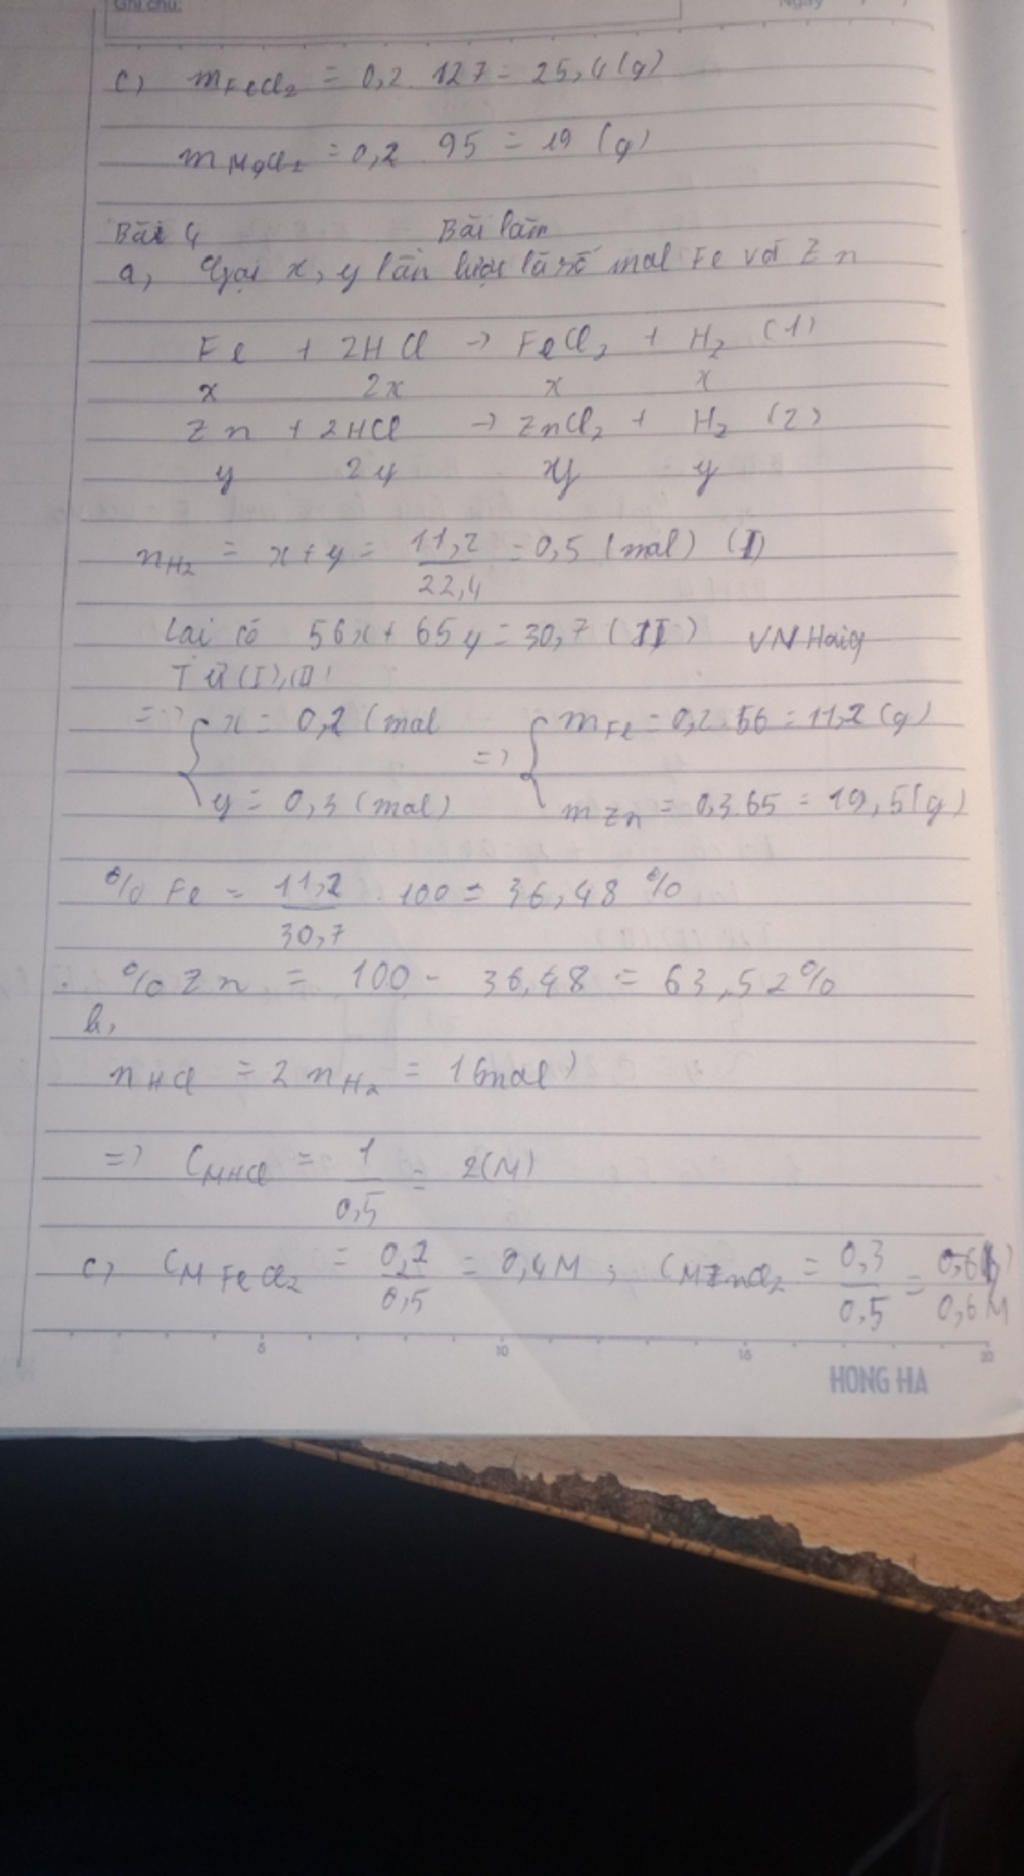 Ghi chú:
Ngày
c, mFeCl₂ = 0,2 . 127 = 25,4 (g)
mMgCl₂ = 0,2 95 = 19 (g)
Bài 4 Bài làm
a, Gọi x, y lần lượt là số mol Fe với Zn
Fe + 2HCl → FeCl₂ + H₂ (1)
x 2x x x
Zn + 2HCl → ZnCl₂ + H₂ (2)
y 2y y y
nH₂ = x + y = 11,2/22,4 = 0,5 (mol) (I)
Lại có 56x + 65y = 30,7 (II) VN Haiq
Từ (I), (II)
=> { x = 0,2 (mol => { mFe = 0,2.56 = 11,2 (g)
y = 0,3 (mol) mZn = 0,3.65 = 19,5 (g)
% Fe = 11,2/30,7 . 100 = 36,48 %
% Zn = 100 - 36,48 = 63,52%
b,
nHCl = 2nH₂ = 1 (mol)
=> CMHCl = 1/0,5 = 2(M)
c, CMFeCl₂ = 0,2/0,5 = 0,4M ; CMZnCl₂ = 0,3/0,5 = 0,6M
5 10 15 20
HONG HA